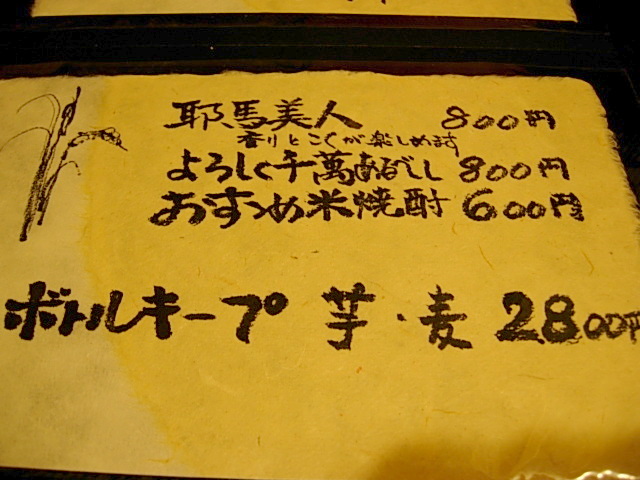 耶馬美人 800円
香りとこくが楽しめます
よろしく千萬あるべし 800円
おすすめ米焼酎 600円
ボトルキープ 芋・麦 2800円